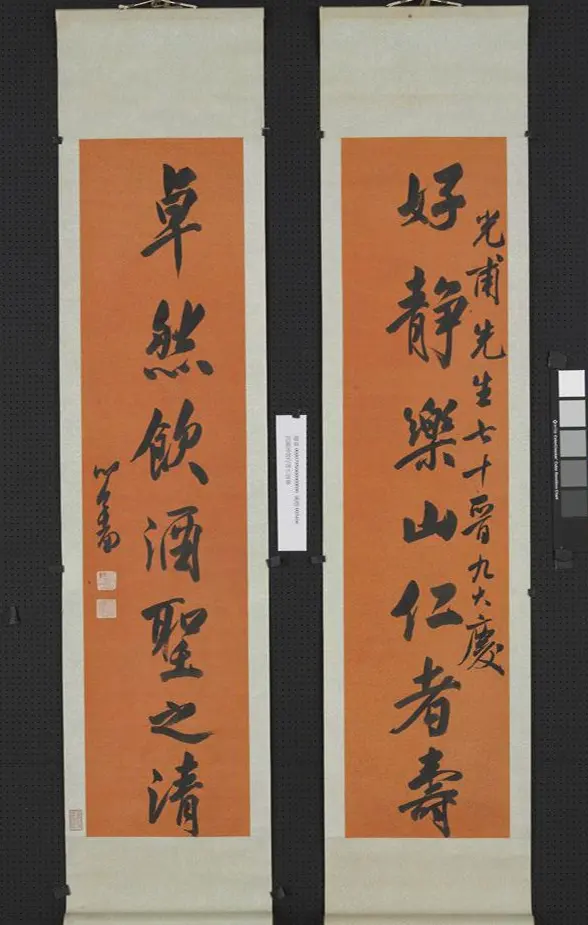 光甫先生七十晉九大慶
好静樂山仁者壽
卓然飲酒聖之清
心畬